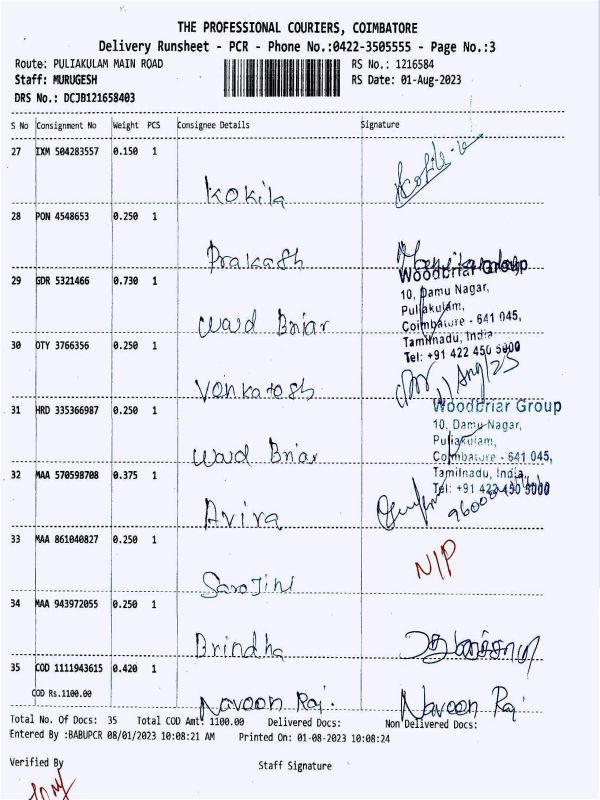 THE PROFESSIONAL COURIERS, COIMBATORE
Delivery Runsheet - PCR - Phone No.:0422-3505555 - Page No.:3
Route: PULIAKULAM MAIN ROAD RS No.: 1216584
Staff: MURUGESH RS Date: 01-Aug-2023
DRS No.: DCJB121658403
S No Consignment No Weight PCS Consignee Details Signature
27 IXM 504283557 0.150 1
Kokila
28 PON 4548653 0.250 1
Prakash
Woodbriar Group
29 GDR 5321466 0.730 1
10, Damu Nagar,
Puliakulam,
Coimbatore - 641 045,
Ward Briar
Tamilnadu, India
30 OTY 3766356 0.250 1
Tel: +91 422 450 5000
Venkatesh
31 HRD 335366987 0.250 1
Woodbriar Group
10, Damu Nagar,
Puliakulam,
Ward Briar
Coimbature - 641 045,
32 MAA 570598708 0.375 1
Tamilnadu, India
Tel: +91 422 450 5000
Avira
33 MAA 861040827 0.250 1
N/P
Sarojini
34 MAA 943972055 0.250 1
Brindha
35 COD 1111943615 0.420 1
COD Rs.1100.00
Naveen Raj. Naveen Raj
Total No. Of Docs: 35 Total COD Amt: 1100.00 Delivered Docs: Non Delivered Docs:
Entered By :BABUPCR 08/01/2023 10:08:21 AM Printed On: 01-08-2023 10:08:24
Verified By Staff Signature